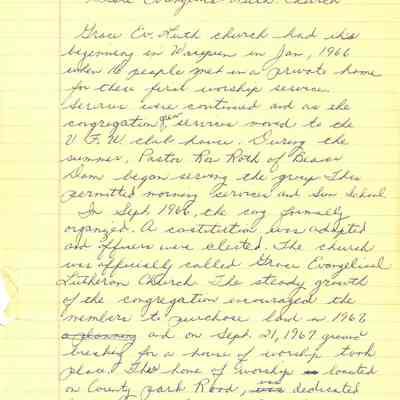 Grace Evangelical Luth. Church
Grace Ev. Luth church had its
beginning in Waupun in Jan, 1966
when 16 people met in a private home
for their first worship service.
Services were continued and as the
congregation grew services moved to the
V F W club house. During the
summer, Pastor Roth of Beaver
Dam began serving the group. This
permitted morning services and Sun School
In Sept 1966, the cong formally
organized. A constitution was adopted
and officers were elected. The church
was officially called Grace Evangelical
Lutheran Church The steady growth
of the congregation encouraged the
members to purchase land in 1967
a planning and on Sept. 21, 1967 ground
breaking for a house of worship took
place. The home of worship located
on County park Road, was dedicated